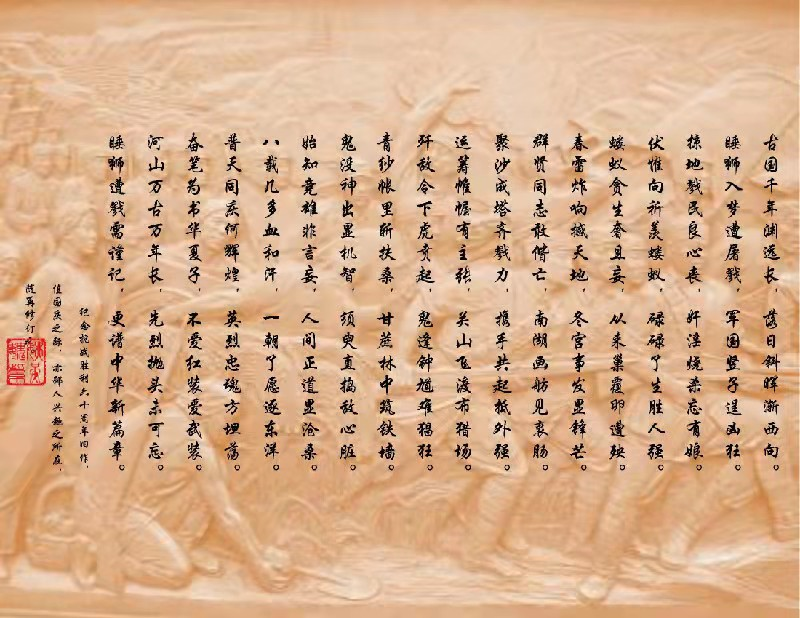 古国千年渊远长，落日斜晖渐西向。
睡狮入梦遭屠戮，军国竖子逞凶狂。
掠地戮民良心丧，奸淫烧杀忘有娘。
伏惟向祈羡蝼蚁，碌碌了生胜人强。
蝼蚁贪生奢且妄，从来巢覆卵遭殃。
春雷炸响撼天地，冬宫事发显锋芒。
群贤同志敢偕亡，南湖画舫见衷肠。
聚沙成塔齐戮力，携手共起抵外强。
运筹帷幄有主张，关山飞渡布猎场。
歼敌令下虎贲起，鬼逢钟馗难猖狂。
青纱帐里斩扶桑，甘蔗林中筑铁墙。
鬼没神出显机智，颉臾直捣敌心脏。
始知竟雄非言妄，人间正道显沧桑。
八载几多血和汗，一朝了愿逐东洋。
普天同庆何辉煌，英烈忠魂方坦荡。
奋笔为书华夏子，不爱红装爱武装。
河山万古万年长，先烈抛头未可忘。
睡狮遭戮需谨记，更谱中华新篇章。
纪念抗战胜利六十周年旧作，
值国庆之际，亦邹人兴趣之所在，
随再修订